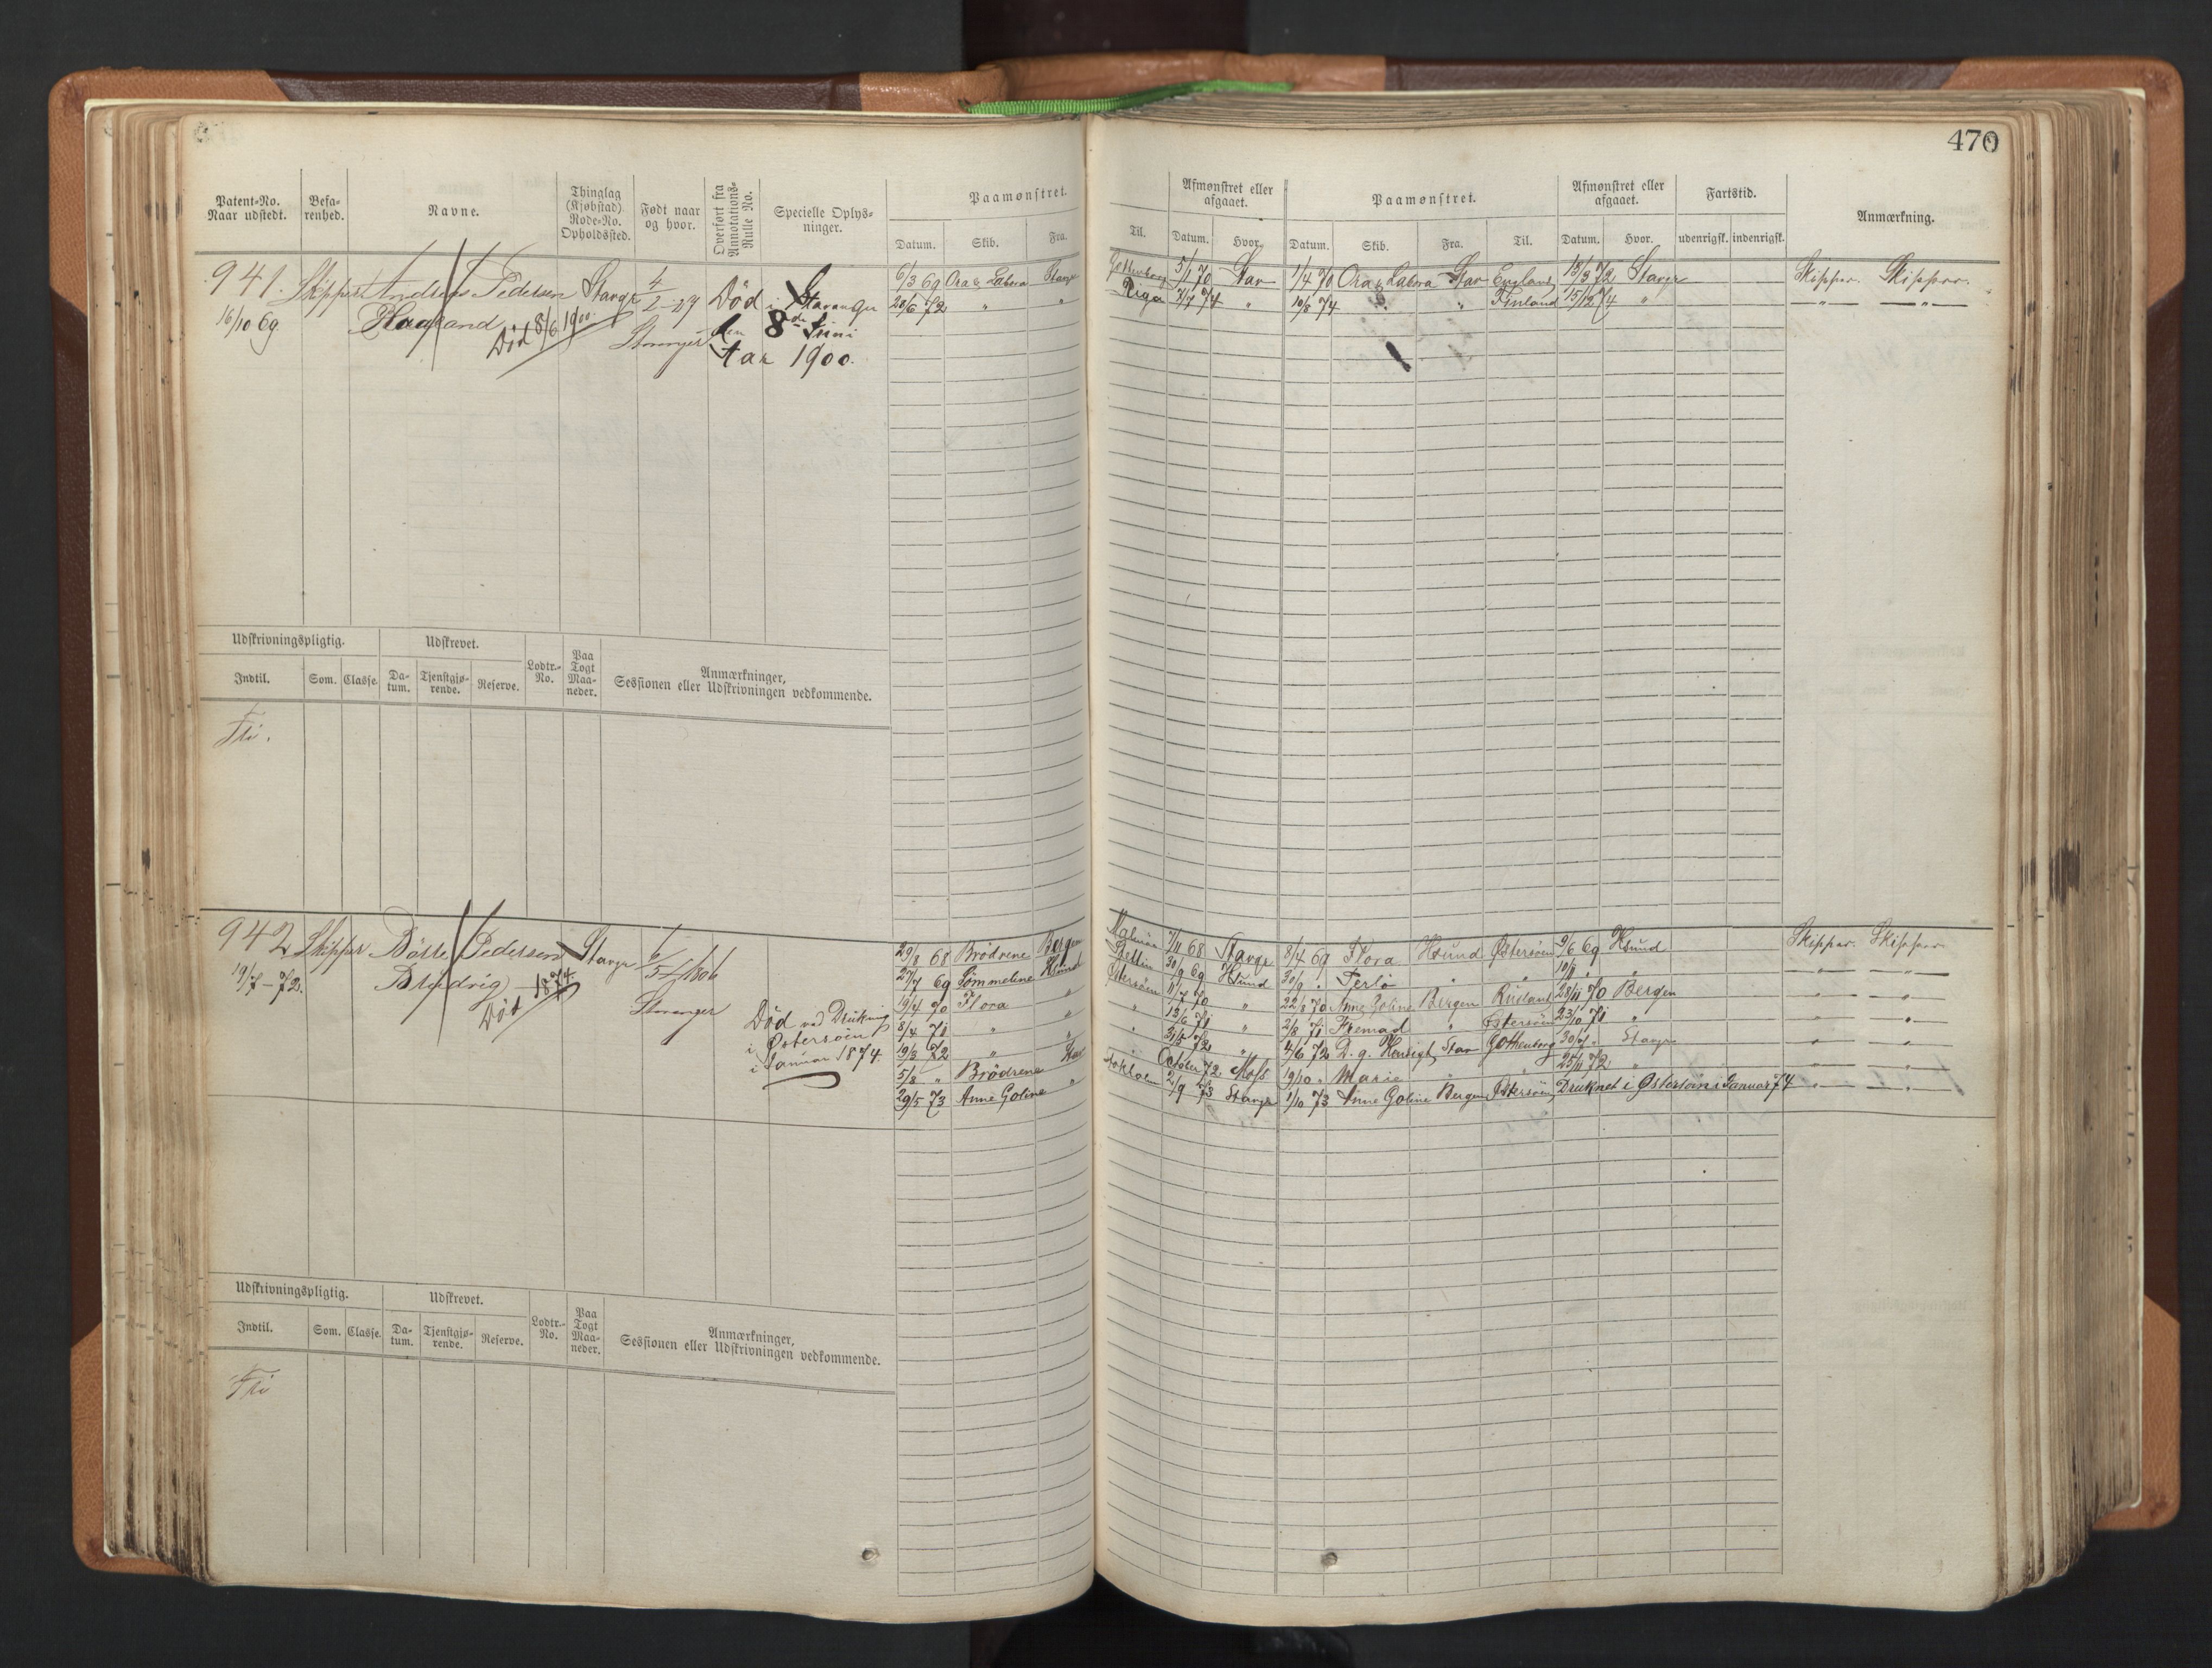 470
Patent-No. Naar udstedt.
Befarenhed.
Navne.
Thinglag (Kjøbstad) Rode-No. Opholdssted.
Født naar og hvor.
Overført fra Annotations-Rulle No.
Specielle Oplysninger.
Paamønstret.
Datum. Skib. Fra. Til.
Afmønstret eller afgaaet.
Datum. Hvor.
Paamønstret.
Datum. Skib. Fra. Til.
Afmønstret eller afgaaet.
Datum. Hvor.
Fartstid.
udenrigsk. indenrigsk.
Anmærkning.
941. Skipper Andreas Pedersen Stavgr 4/2-27 Død i Stavanger
16/10 69 Haaland Død 8/6 1900 Stavanger den 8de Juni
Aar 1900.
6/3 69 Ora & Labora Stavgr 5/1 70 Stav 1/4 70 Ora & Labora Stav England 13/3 72 Stavgr Skipper. Skipper.
28/6 72 " " Riga 7/7 74 " 10/8 74 " " Finland 15/12 74 " —"— —"—
Udskrivningspligtig. Udskrevet. Lodtr.-No. Paa Togt Maaneder. Anmærkninger, Sessionen eller Udskrivningen vedkommende.
Indtil. Som. Classe. Datum. Tjenstgjørende. Reserve.
Fri.
942 Skipper Pedersen Stavgr 6/5 1806
19/7-72. Død 1874 Stavanger
Død ved Drukning
i Østersøen
i Januar 1874.
29/8 68 Brødrene Bergen Malmøe 7/11 68 Stavgr 8/4 69 Flora Hsund Østersøen 9/6 69 Hsund Skipper. Skipper
27/7 69 Hsund Stettin 30/9 69 Hsund 30/9 " " " 10/11 " " —"— —"—
19/4 70 Flora " Østersøen 11/7 70 " 22/8 70 Anne Goline Bergen Rusland 28/11 70 Bergen —"— —"—
8/4 71 " " " 13/6 71 " 2/8 71 " Østersøen 23/10 71 " —"— —"—
19/3 72 " " " 31/5 72 " 4/6 72 Stav Gottenborg 30/7 " Stavgr —"— —"—
5/8 " Brødrene Stav October 72 Moss 19/10 " Marie " " 25/11 72 " —"— —"—
29/5 73 Anne Goline " Stokholm 2/9 73 Stavgr 1/10 73 Anne Goline Bergen Østersøen Druknet i Østersøen i Januar 74 —"— —"—
Udskrivningspligtig. Udskrevet. Lodtr.-No. Paa Togt Maaneder. Anmærkninger, Sessionen eller Udskrivningen vedkommende.
Indtil. Som. Classe. Datum. Tjenstgjørende. Reserve.
Fri